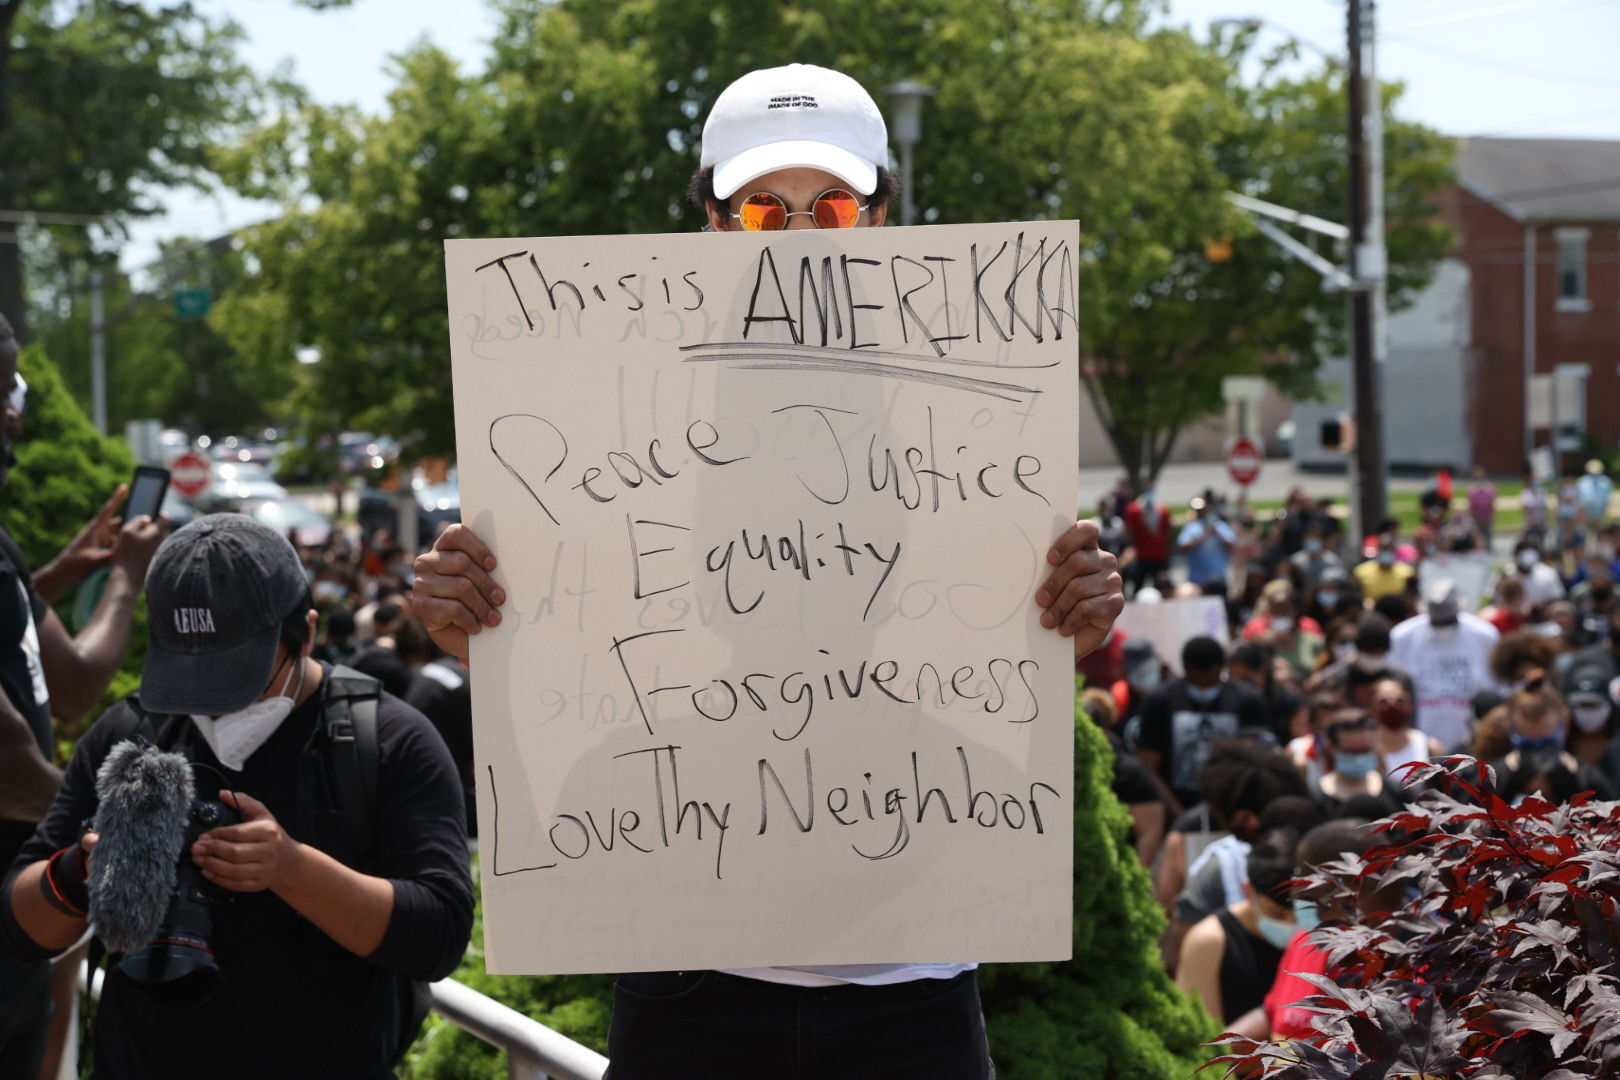 MADE IN THE
IMAGE OF GOD
This is AMERIKKKA
Peace Justice
Equality
Forgiveness
Love Thy Neighbor